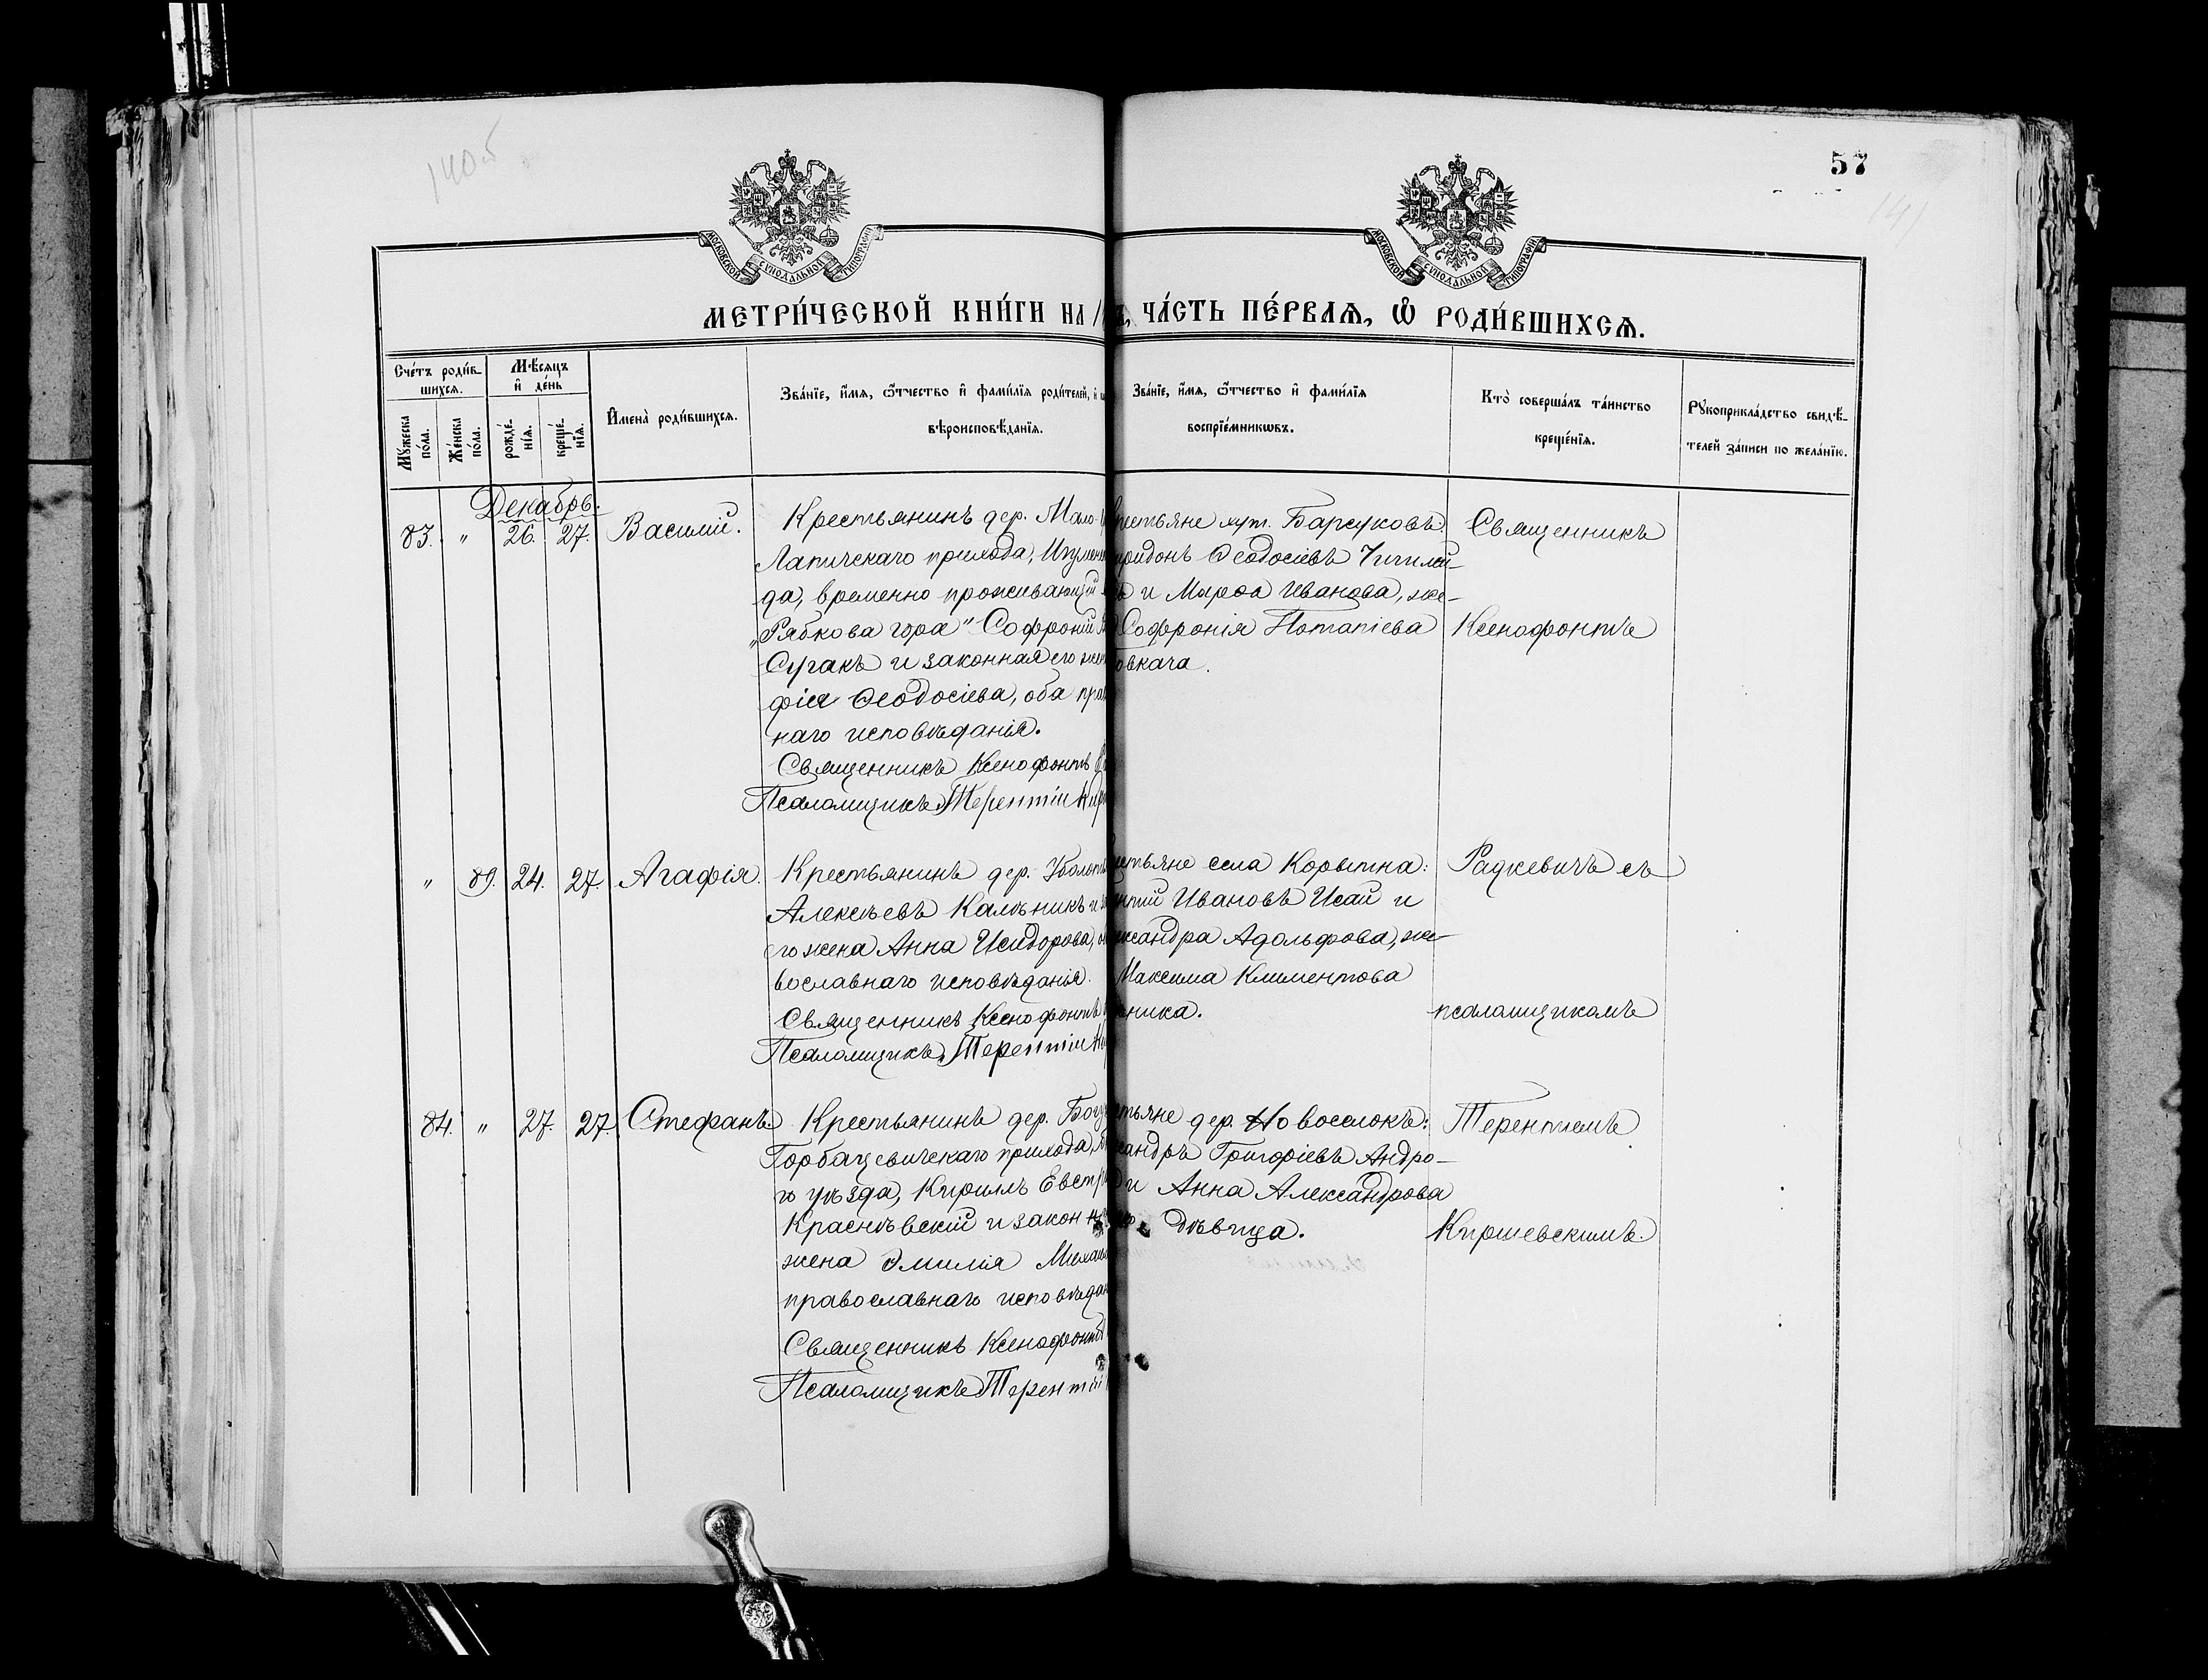 140об
57
141
МОСКОВСКОЙ СѴНОДАЛЬНОЙ ТИПОГРАФІИ
МОСКОВСКОЙ СѴНОДАЛЬНОЙ ТИПОГРАФІИ
МЕТРИ́ЧЕСКОЙ КНИ́ГИ НА ЧА́СТЬ ПЕ́РВАѦ, Ѡ РОДИ́ВШИХСѦ.
Сче́тъ роди́в-
шихся.
Мѣ́сяцъ
и҆ де́нь
Мꙋ́жеска
по́ла.
Же́нска
по́ла.
рожде́-
нїя.
креще́-
нїя.
И҆мена̀ роди́вшихся.
Зва́нїе, и҆́мя, ѻ҆́тчество и҆ фами́лїя роди́телей, и҆
вѣроисповѣ́данїя.
Зва́нїе, и҆́мя, ѻ҆́тчество и҆ фами́лїя
воспрїе́мникѡвъ.
Кто̀ соверша́лъ та́инство
креще́нїя.
Рꙋкоприкла́дство свидѣ́-
телей за́писи по жела́нїю.
Декабрь.
83. " 26. 27. Василій.
Крестьянинъ дер. Мало-
Лапичскаго прихода, Игумен
да, временно проживающій
"Рябкова гора" Софроній
Сугакъ и законная его жен
фія Ѳеодосіева, оба пра
наго исповѣданія.
Священникъ Ксенофонтъ
Псаломщикъ Терентій Кир
рестьяне хут. Барсуковъ
иридонъ Ѳеодосіевъ Чигилей-
и Марѳа Иванова, же-
Софронія Потапіева
овкача.
Священникъ
Ксенофонтъ
" 89. 24. 27. Агафія.
Крестьянинъ дер. Уболот
Алексѣевъ Калѣникъ и за
го жена Анна Исидорова,
вославнаго исповѣданія.
Священникъ Ксенофонтъ
Псаломщикъ Терентій
естьяне села Корытна:
нтій Ивановъ Исай и
ександра Адольфова, же-
Максима Климентова
ника.
Радкевичъ съ
псаломщикомъ
84. " 27. 27. Стефанъ.
Крестьянинъ дер. Богу
Горбацевичскаго прихода,
го уѣзда, Кириллъ Евстр
Краснѣвскій и закон
жена Эмилія Михаил
православнаго исповѣдан
Священникъ Ксенофонтъ
Псаломщикъ Терентій
тьяне дер. Новоселокъ:
сандръ Григоріевъ Андро-
и Анна Александрова
дѣвица.
Терентіемъ
Киршевскимъ.